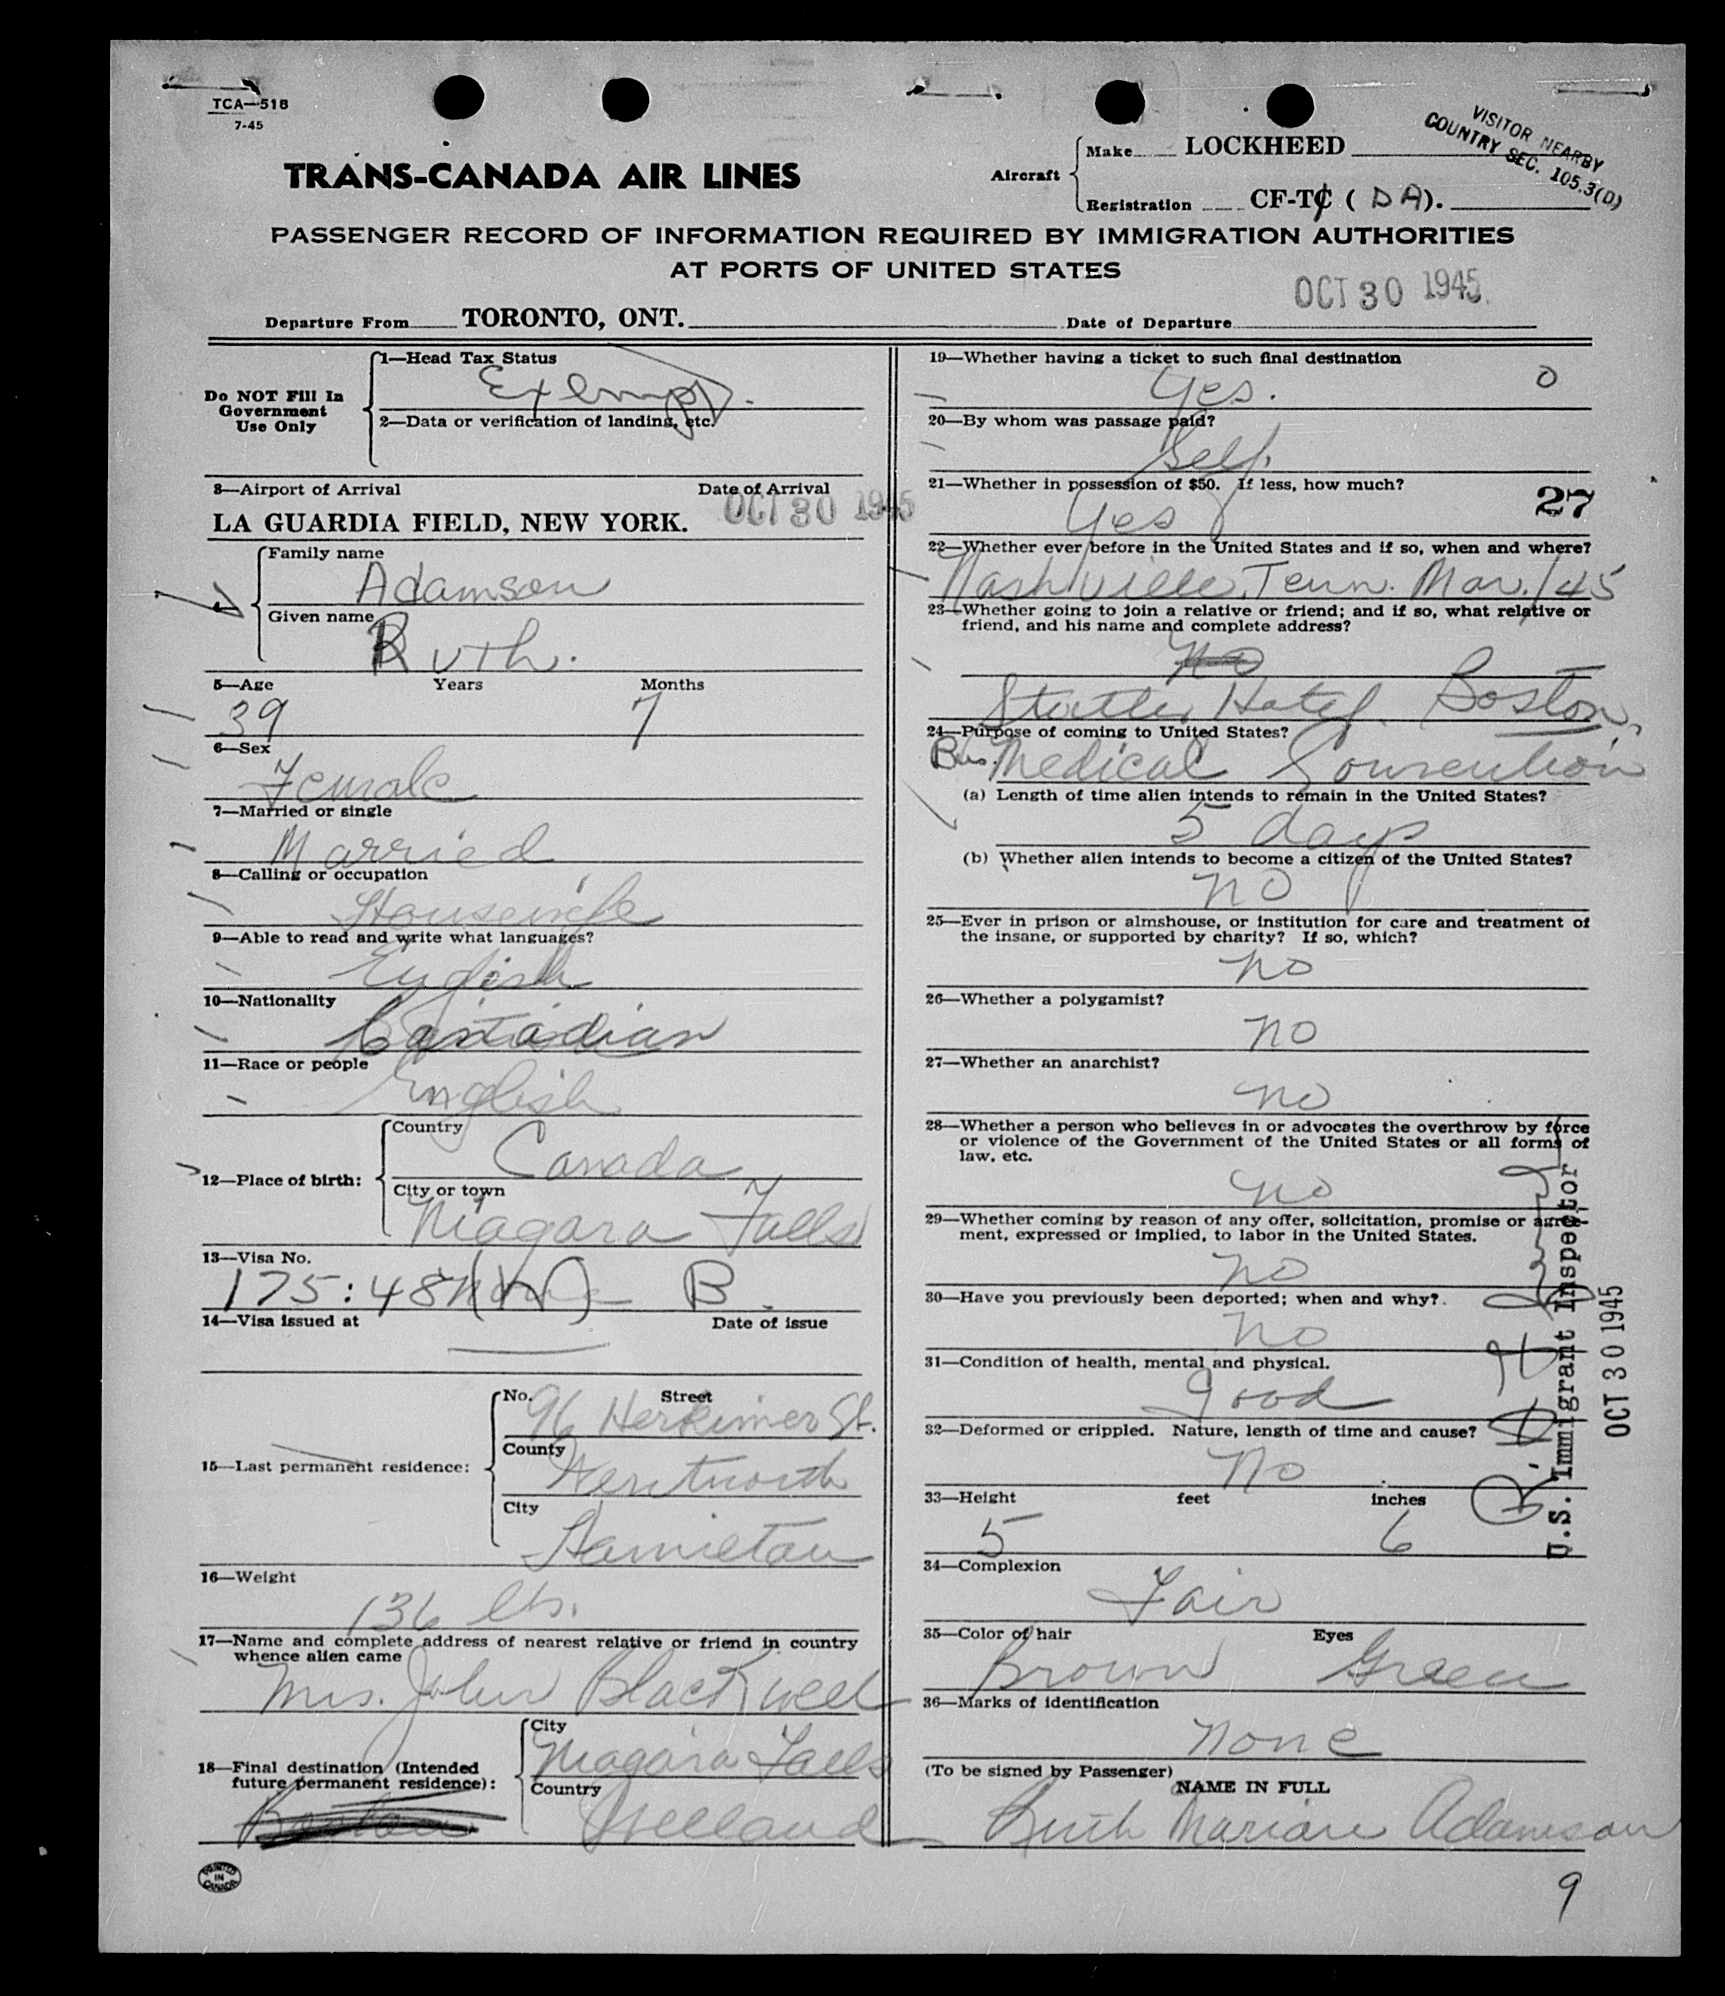 TCA—518
7-45
TRANS-CANADA AIR LINES
Aircraft
Make LOCKHEED
Registration CF-TC ( DA ).
VISITOR NEARBY
COUNTRY SEC. 105.3(D)
PASSENGER RECORD OF INFORMATION REQUIRED BY IMMIGRATION AUTHORITIES
AT PORTS OF UNITED STATES
OCT 30 1945
Departure From TORONTO, ONT.
Date of Departure
Do NOT Fill In
Government
Use Only
1—Head Tax Status
Exempt.
2—Data or verification of landing, etc.
3—Airport of Arrival Date of Arrival
LA GUARDIA FIELD, NEW YORK. OCT 30 1945
Family name
Adamson
Given name
Ruth.
5—Age Years Months
39 7
6—Sex
Female
7—Married or single
Married
8—Calling or occupation
Housewife
9—Able to read and write what languages?
English
10—Nationality
Canadian
11—Race or people
English
12—Place of birth:
Country
Canada
City or town
Niagara Falls
13—Visa No.
175:48 None B.
14—Visa issued at Date of issue
15—Last permanent residence:
No. Street
96 Herkimer St.
County
Wentworth
City
Hamilton
16—Weight
136 lbs.
17—Name and complete address of nearest relative or friend in country
whence alien came
Mrs. John Blackwell
18—Final destination (Intended
future permanent residence):
Boston
City
Niagara Falls
Country
Welland
PRINTED
IN
CANADA
19—Whether having a ticket to such final destination
Yes. 0
20—By whom was passage paid?
Self.
21—Whether in possession of $50. If less, how much?
Yes 27
22—Whether ever before in the United States and if so, when and where?
Nashville, Tenn. Mar./45
23—Whether going to join a relative or friend; and if so, what relative or
friend, and his name and complete address?
No
Statler Hotel. Boston,
24—Purpose of coming to United States?
Bus. Medical Convention
(a) Length of time alien intends to remain in the United States?
5 days
(b) Whether alien intends to become a citizen of the United States?
no
25—Ever in prison or almshouse, or institution for care and treatment of
the insane, or supported by charity? If so, which?
no
26—Whether a polygamist?
no
27—Whether an anarchist?
no
28—Whether a person who believes in or advocates the overthrow by force
or violence of the Government of the United States or all forms of
law, etc.
no
29—Whether coming by reason of any offer, solicitation, promise or agree-
ment, expressed or implied, to labor in the United States.
no
30—Have you previously been deported; when and why?
no
31—Condition of health, mental and physical.
good
32—Deformed or crippled. Nature, length of time and cause?
no
33—Height feet inches
5 6
34—Complexion
Fair
35—Color of hair Eyes
Brown Green
36—Marks of identification
none
(To be signed by Passenger)
NAME IN FULL
Ruth Marian Adamson
U.S. Immigrant Inspector
OCT 30 1945
9